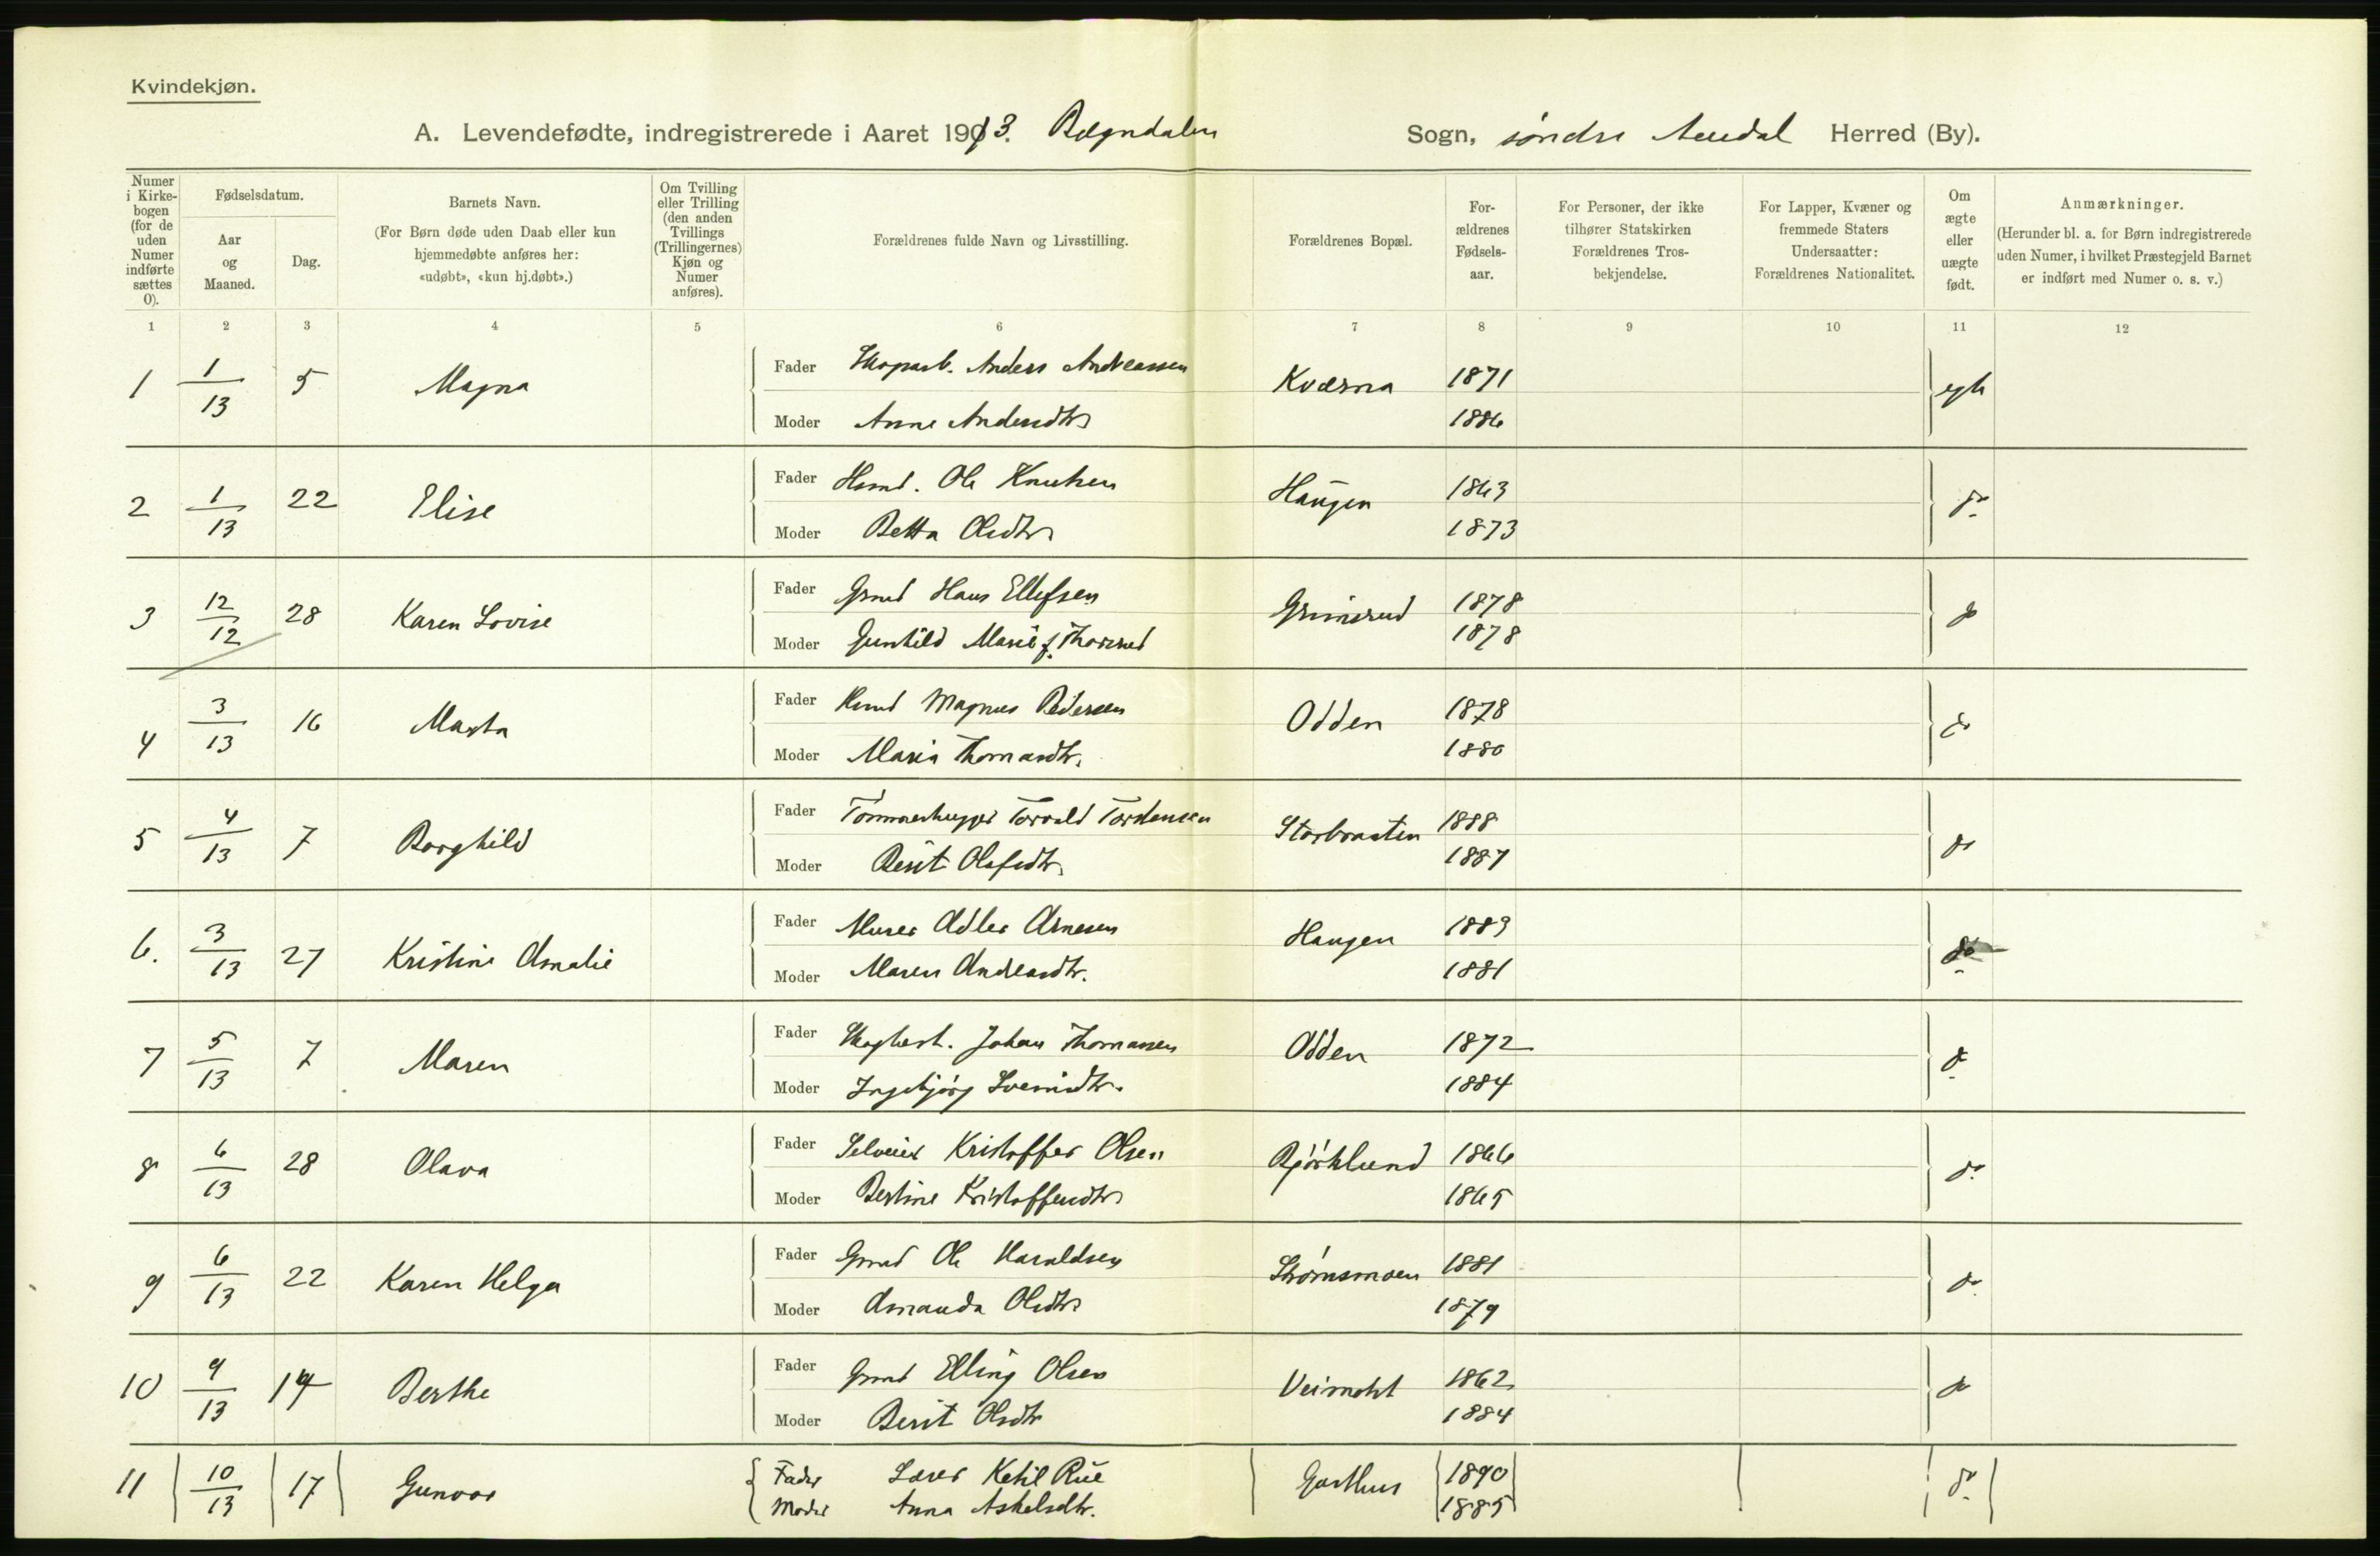 Kvindekjøn.
A. Levendefødte, indregistrerede i Aaret 1913. Bægndalen Sogn, søndre Aurdal Herred (By).
Numer i Kirkebogen (for de uden Numer indførte sættes 0).
Fødselsdatum.
Aar og Maaned.
Dag.
Barnets Navn.
(For Børn døde uden Daab eller kun hjemmedøbte anføres her: «udøbt», «kun hj.døbt».)
Om Tvilling eller Trilling (den anden Tvillings (Trillingernes) Kjøn og Numer anføres).
Forældrenes fulde Navn og Livsstilling.
Forældrenes Bopæl.
Forældrenes Fødselsaar.
For Personer, der ikke tilhører Statskirken Forældrenes Trosbekjendelse.
For Lapper, Kvæner og fremmede Staters Undersaatter: Forældrenes Nationalitet.
Om ægte eller uægte født.
Anmærkninger.
(Herunder bl. a. for Børn indregistrerede uden Numer, i hvilket Præstegjeld Barnet er indført med Numer o. s. v.)
1 2 3 4 5 6 7 8 9 10 11 12
1 1/13 5 Magna Fader Skogarb. Anders Andreassen Kværna 1871 egte
Moder Anne Andersdtr 1886
2 1/13 22 Elise Fader Hsmd. Ole Knutsen Haugen 1863 do
Moder Betta Olsdtr 1873
3 12/12 28 Karen Lovise Fader Grmd Hans Ellefsen Grimsrud 1878 do
Moder Gunhild Marie f. Thorsrud 1878
4 3/13 16 Marta Fader Hsmd Magnus Pedersen Odden 1878 do
Moder Maria Thomasdtr. 1880
5 4/13 7 Borghild Fader Tømmerhugger Torvald Tordensen Storbraaten 1888 do
Moder Berit Olafsdtr. 1887
6. 3/13 27 Kristine Amalie Fader Murer Adler Arnesen Haugen 1883 do
Moder Maren Andreasdtr. 1881
7 5/13 7 Maren Fader Johan Thomassen Odden 1872 do
Moder Ingebjørg Svensdtr. 1884
8 6/13 28 Olava Fader Selveier Kristoffer Olsen Bjørklund 1866 do
Moder Bertine Kristoffersdtr 1865
9 6/13 22 Karen Helga Fader Grmd Ole Haraldsen Strømsmoen 1881 do
Moder Amanda Olsdtr 1879
10 9/13 14 Berthe Fader Grmd Elling Olsen Veimoht 1862 do
Moder Berit Olsdtr 1884
11 10/13 17 Gunvor Fader Lærer Ketil Rue Garthus 1890 do
Moder Anna Askelsdtr. 1885